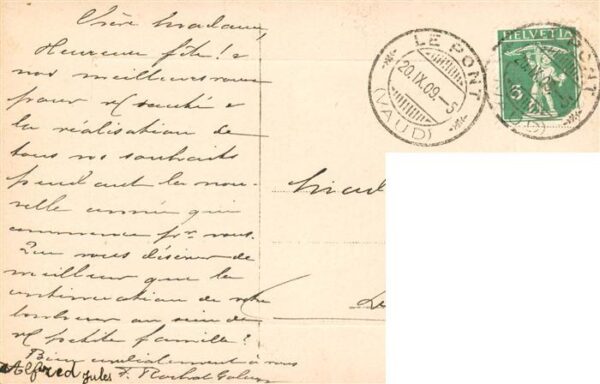 Chère Madame,
Heureuse fête! &
nos meilleurs vœux
pour vtre santé &
la réalisation de
tous vos souhaits
pendant la nou-
velle année qui
commence pr vous.
Que vous désirer de
meilleur que la
continuation de votre
bonheur au sein de
vtre petite famille?
Bien cordialement à vous
Alfred Jules F. Rochat
Mad
LE PONT
20.IX.09.-5
(VAUD)
HELVETIA
5
PONT